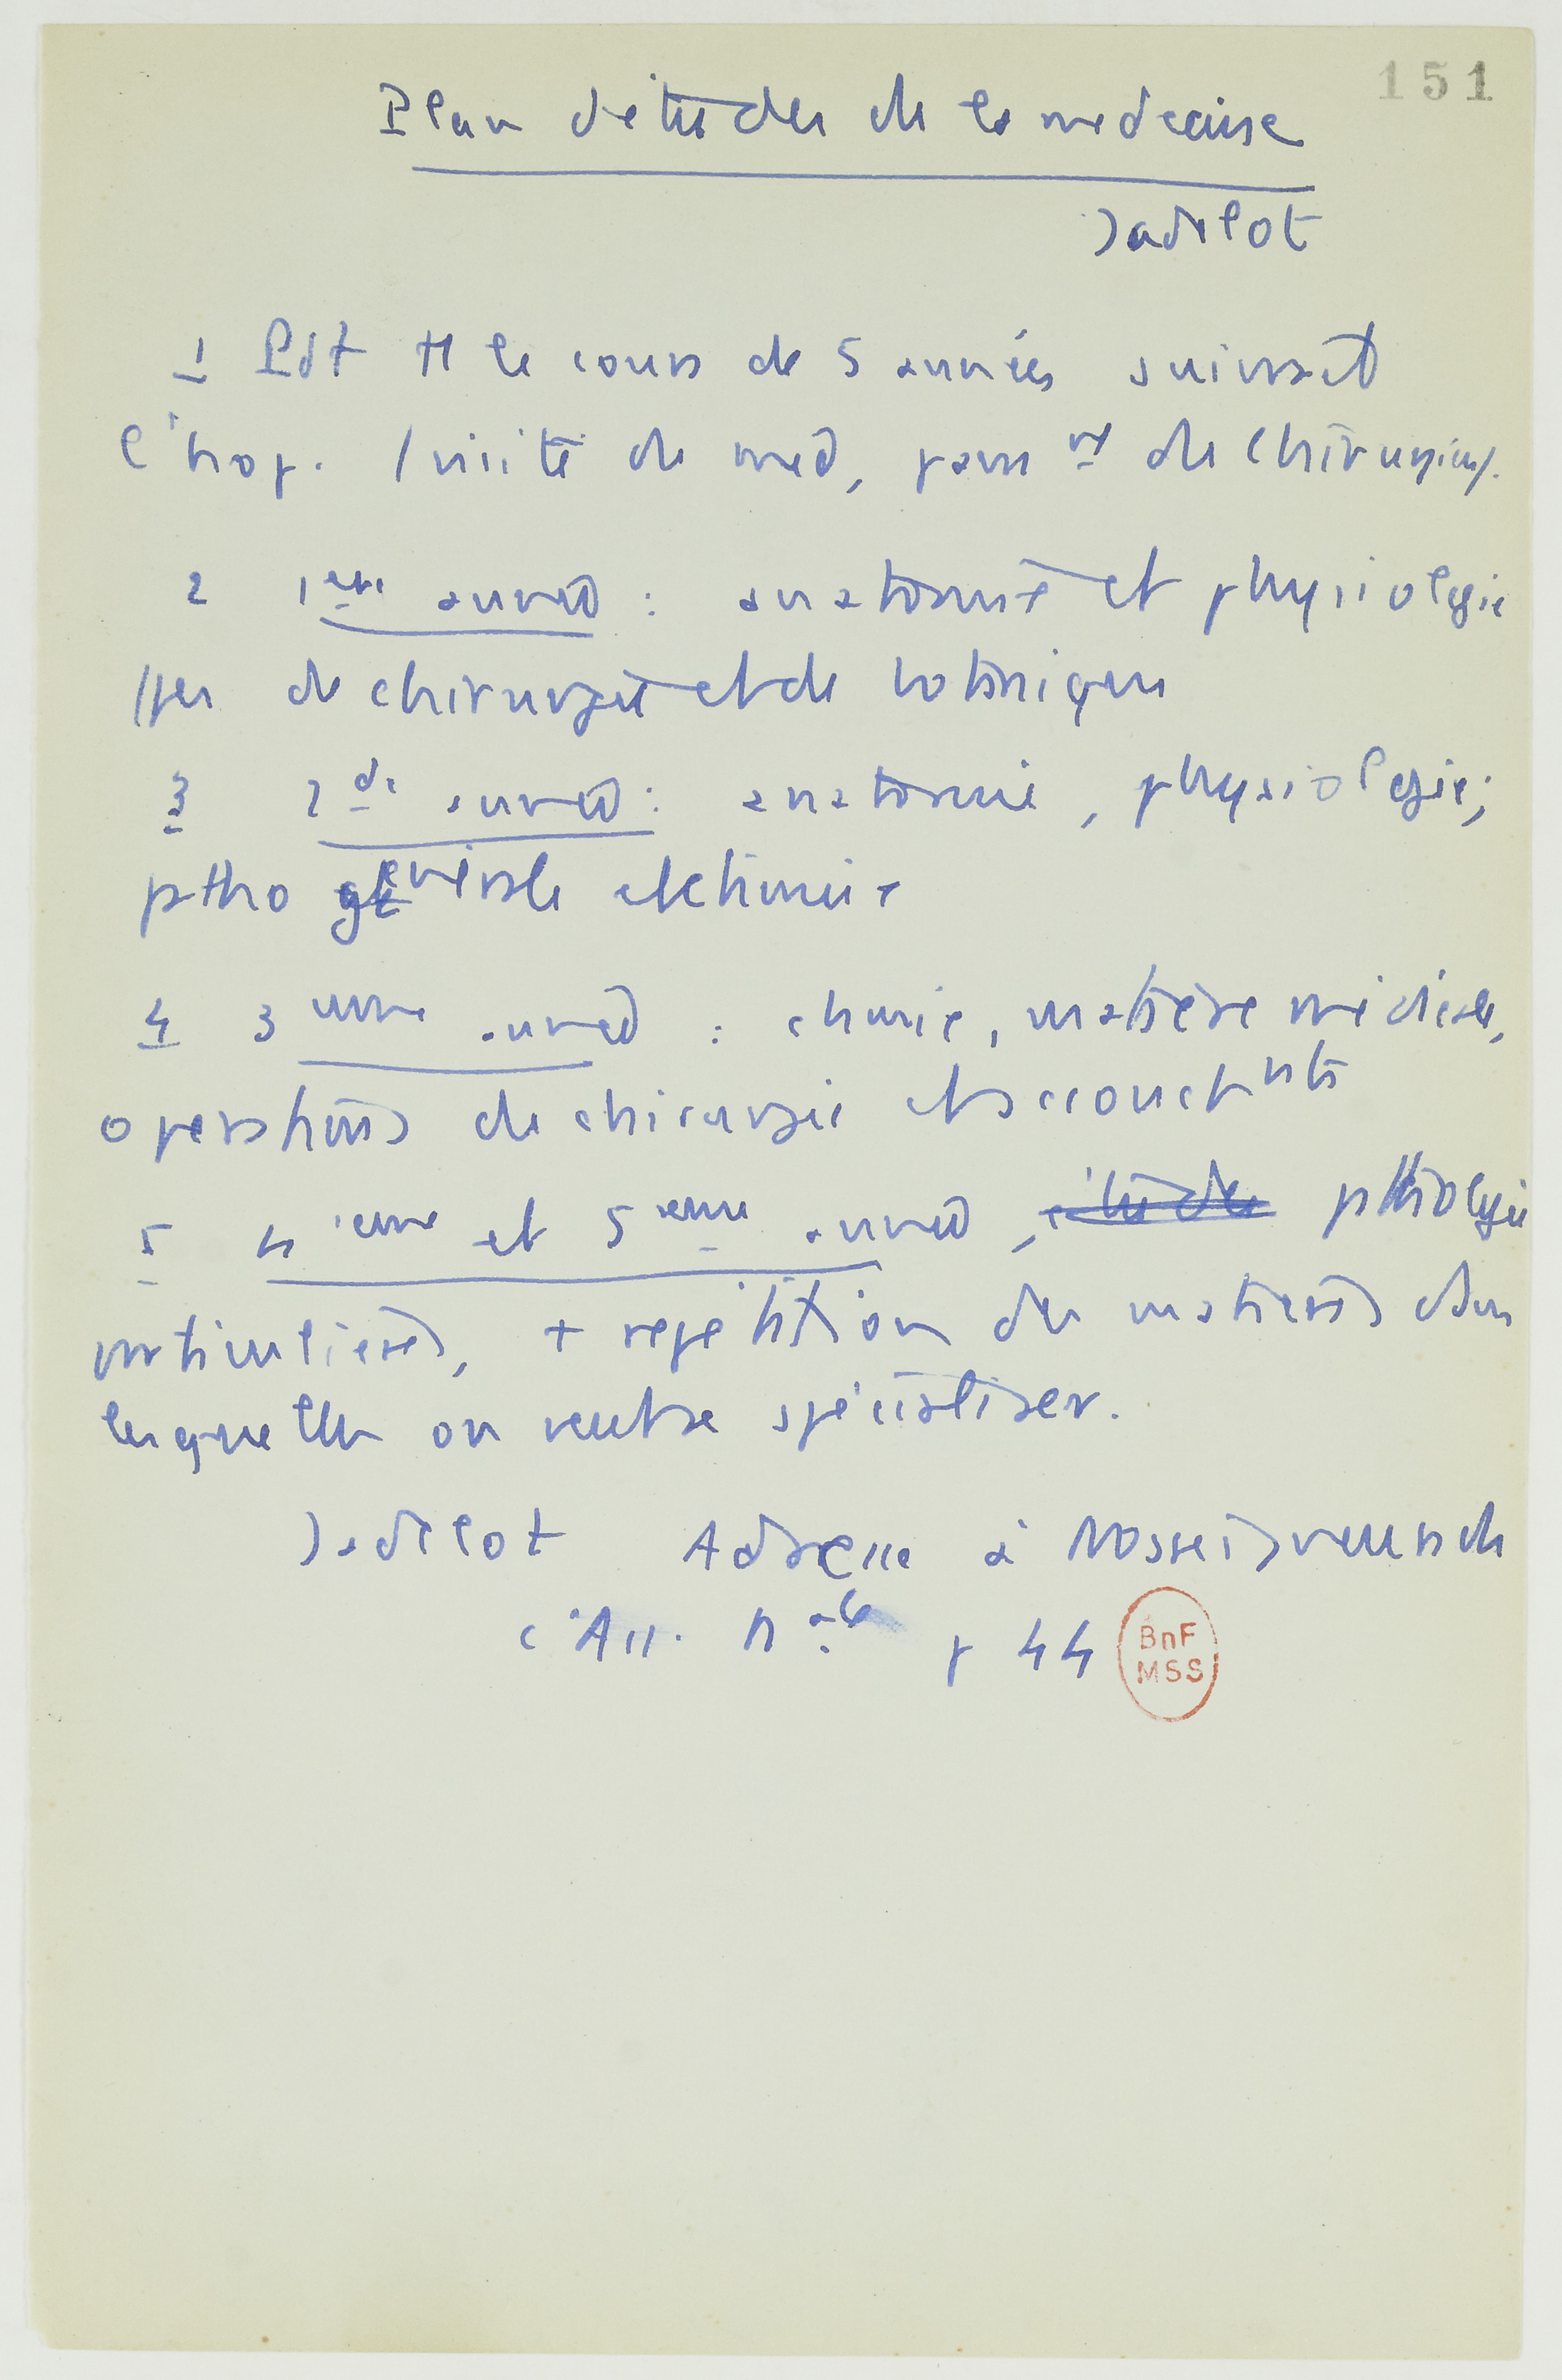 151
Plan d'études de la médecine
Jadelot
1 Pdt tt le cours de 5 années suivront
l'hop. (visite de med, pansnt de chirurgien).
2 1ere année : anatomie et physiologie
ppes de chirurgie et de botanique
3 2de année : anatomie, physiologie ;
patho générale et chimie
4 3eme année : chimie, matière médicale,
opérations de chirurgie et accouchnts
5 4ieme et 5ieme année, études pathologie
particulières, + répétition des matières dans
lesquelles on veut se spécialiser.
Jadelot Adresse à Nosseigneurs de
l'Ass. Nale p 44
BnF
MSS